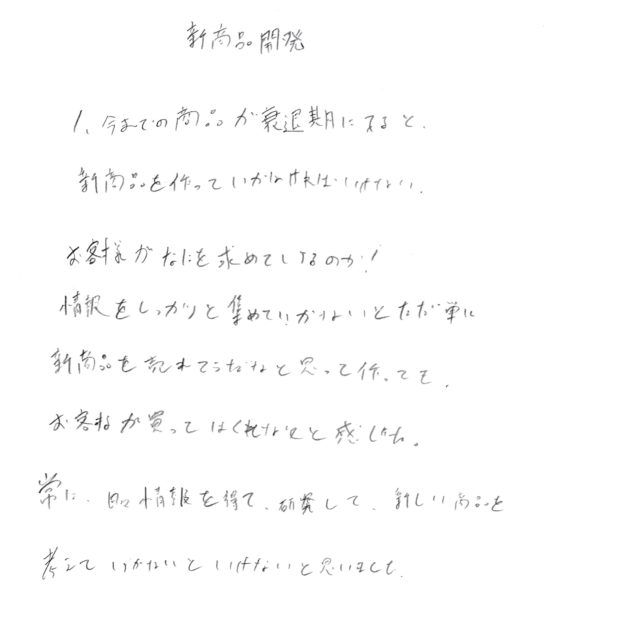 新商品開発
1、今までの商品が衰退期に入ると、
新商品を作っていかなければいけない。
お客様がなにを求めているのか!
情報をしっかりと集めていかないとただ単に
新商品を売れてうだなと思って作っても、
お客様が買ってはくれないと感じた。
常に、日々情報を得て、研発して、新しい商品を
考えていかないといけないと思いました。